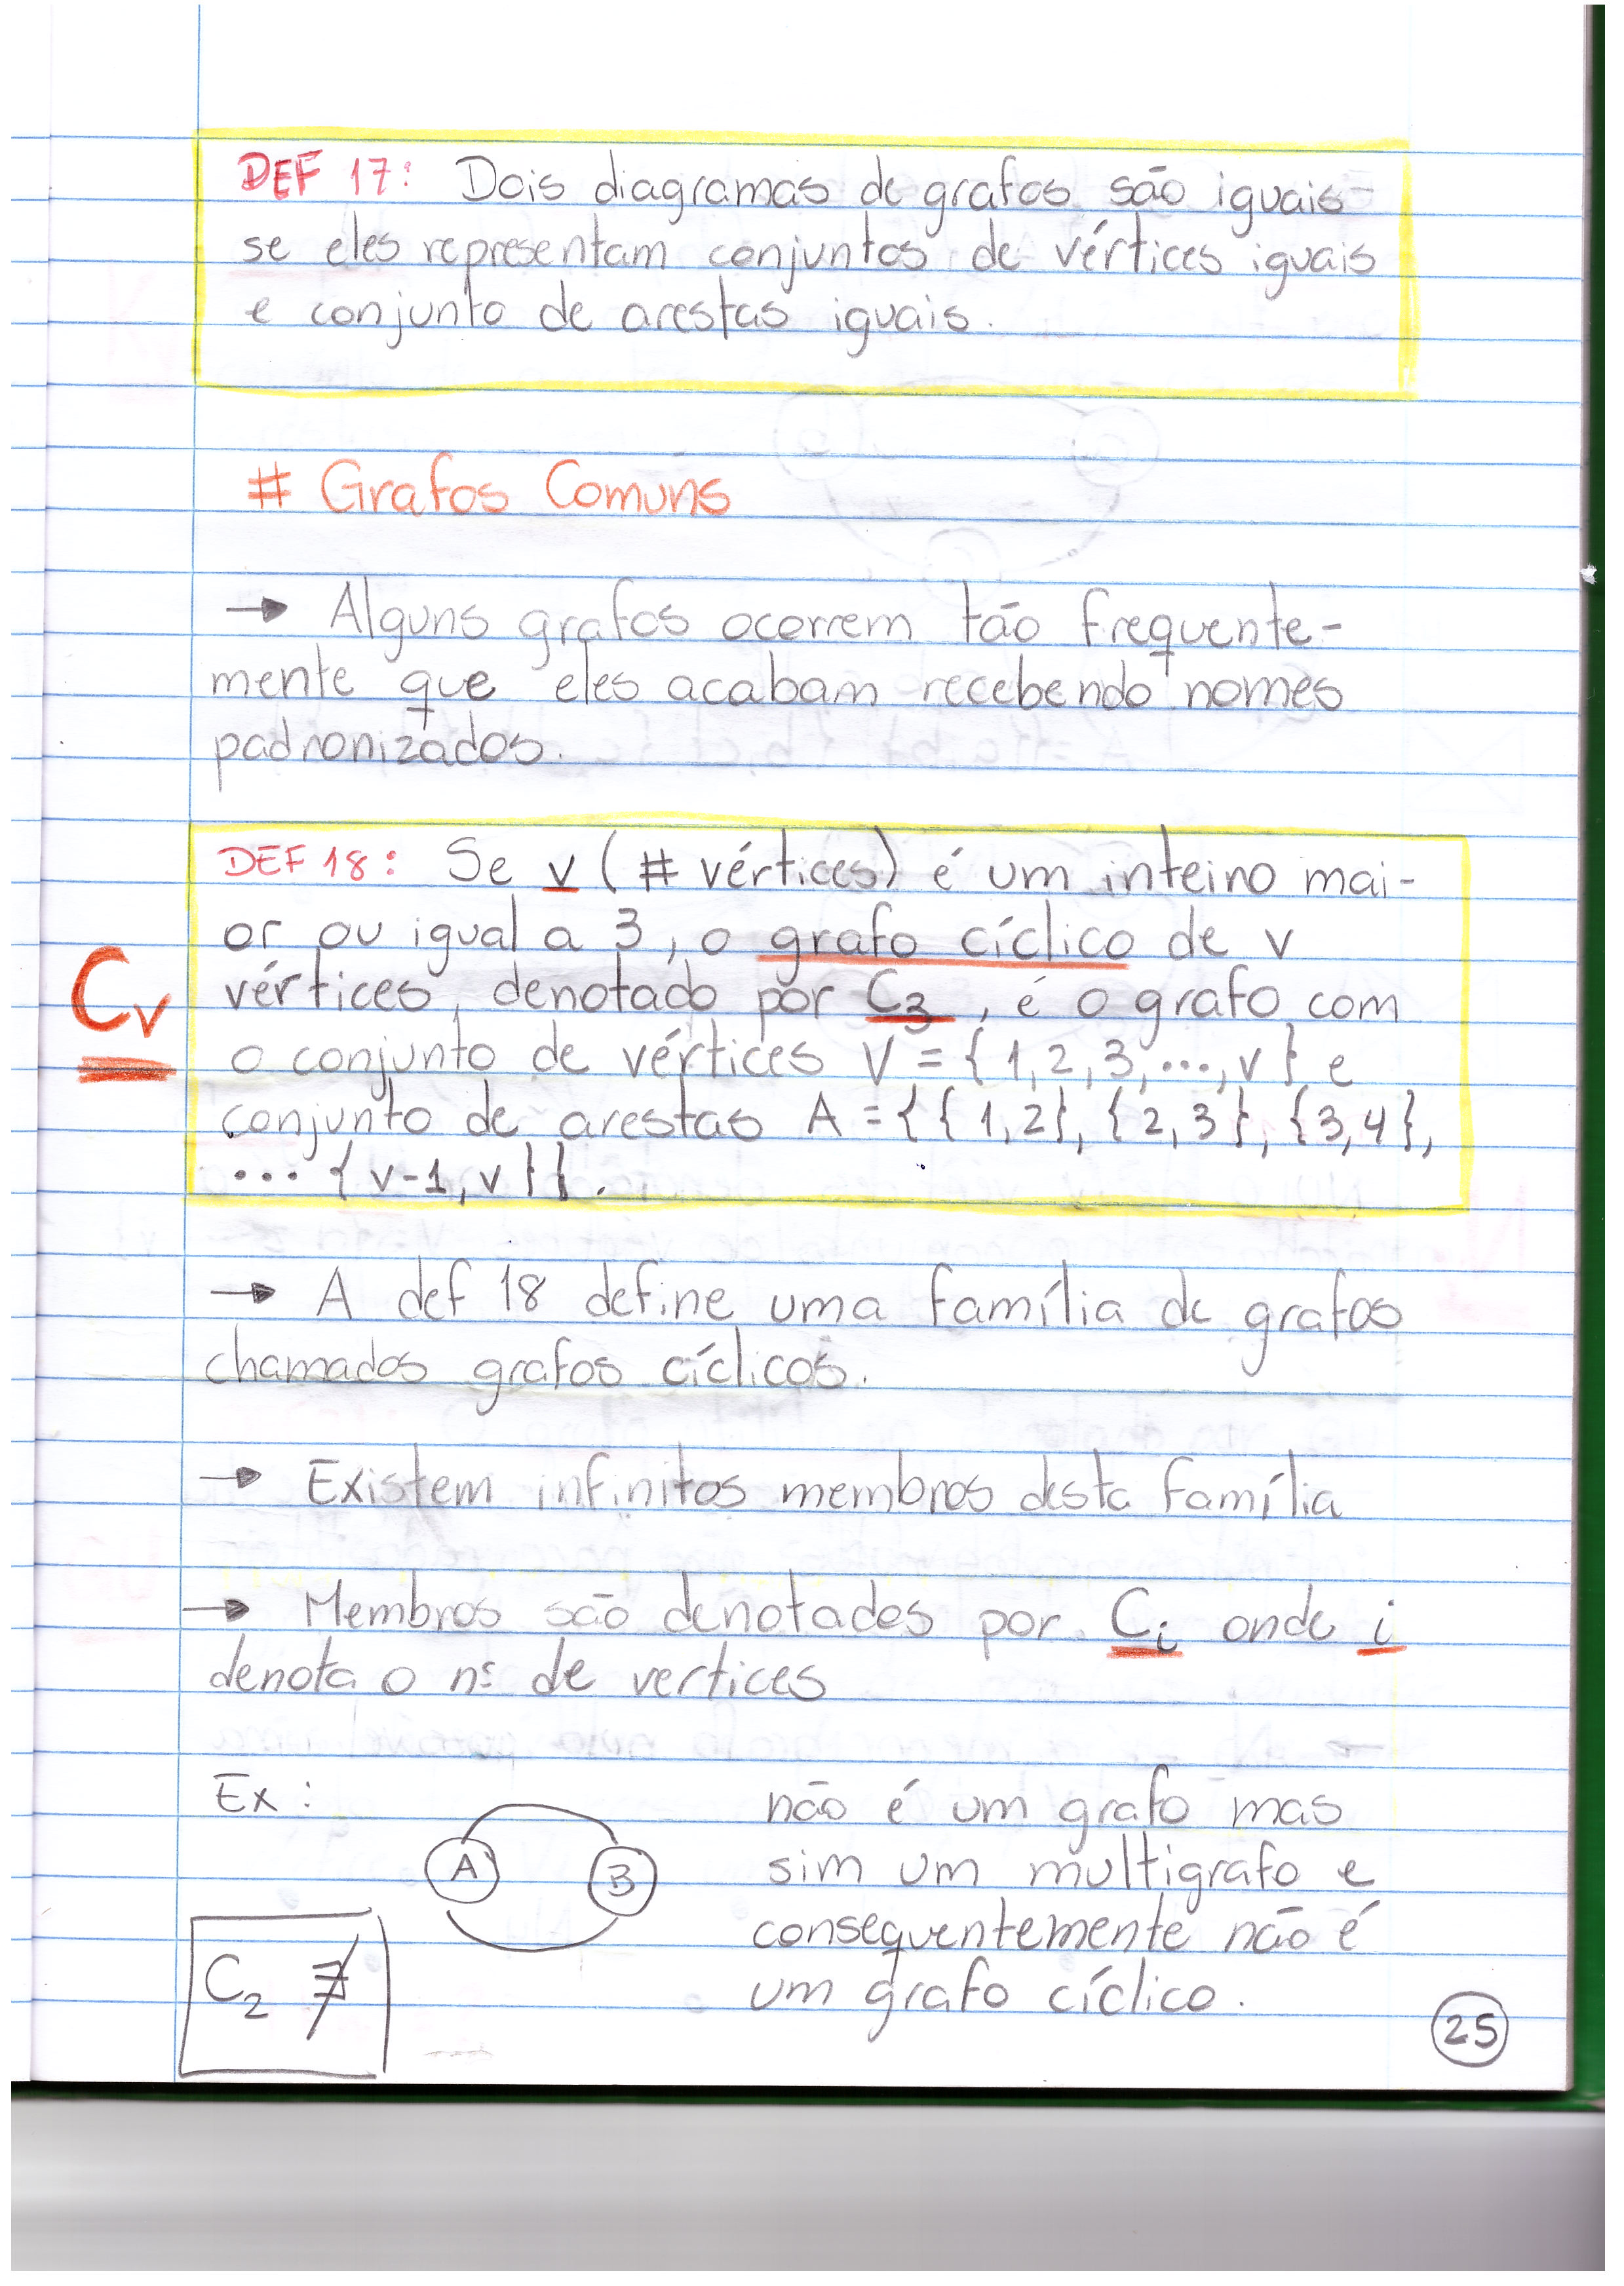 DEF 17: Dois diagramas de grafos são iguais
se eles representam conjuntos de vértices iguais
e conjunto de arestas iguais.
# Grafos Comuns
→ Alguns grafos ocorrem tão frequente-
mente que eles acabam recebendo nomes
padronizados.
DEF 18: Se v (# vértices) é um inteiro mai-
or ou igual a 3, o grafo cíclico de v
Cv
vértices, denotado por C3, é o grafo com
o conjunto de vértices V = {1,2,3,...,v} e
conjunto de arestas A = {{1,2}, {2,3}, {3,4},
... {v-1,v}}.
→ A def 18 define uma família de grafos
chamados grafos cíclicos.
→ Existem infinitos membros desta família
→ Membros são denotados por Ci onde i
denota o nº de vertices
Ex:
A B
C2 ∄
não é um grafo mas
sim um multigrafo e
consequentemente não é
um grafo cíclico.
25